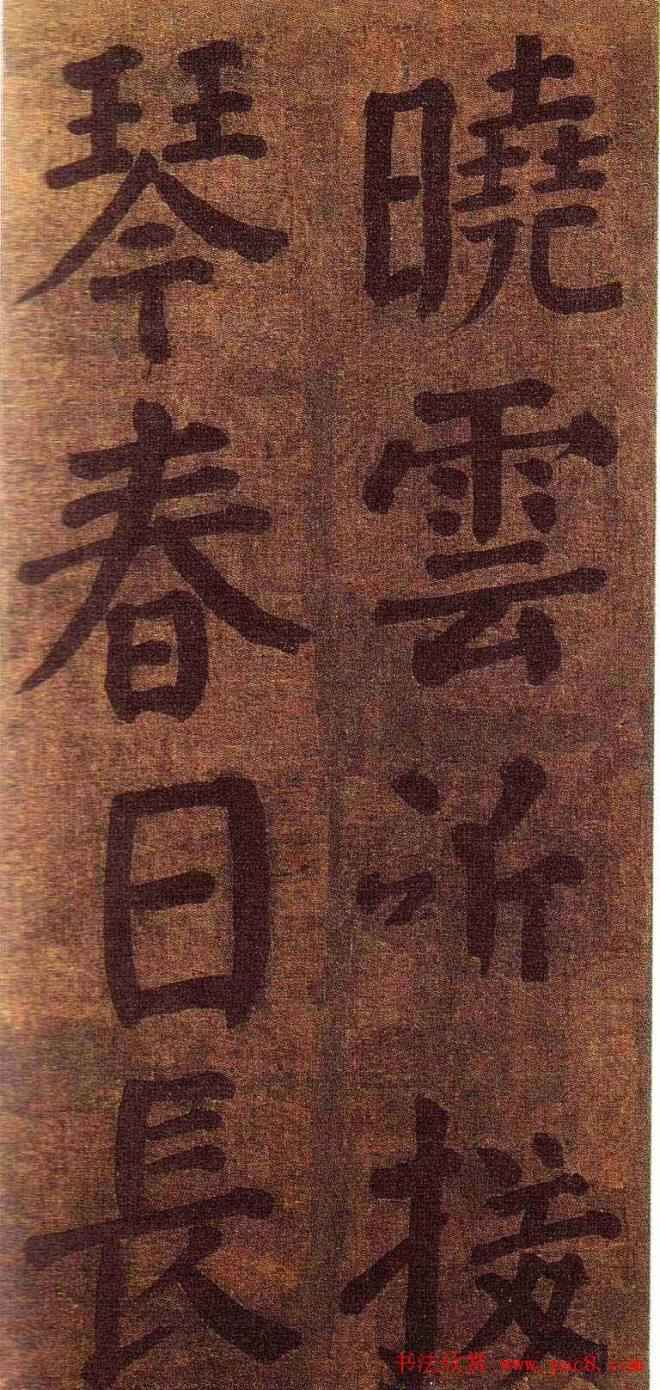 曉雲所接
琴春日長
书法欣赏 www.yac8.com